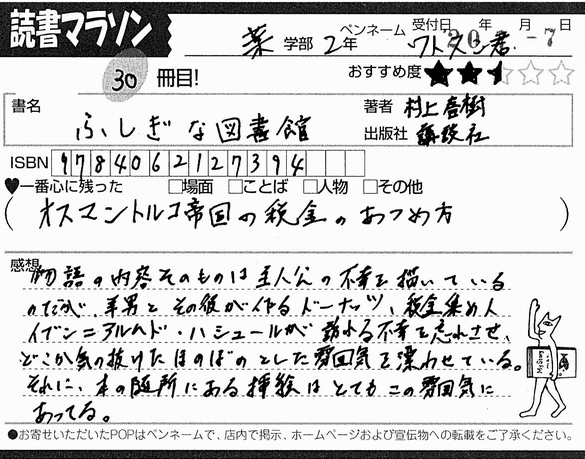 読書マラソン
薬 学部 2年 ペンネーム ワトタン君 受付日 20年 月 -7日
30 冊目!
おすすめ度 ★★
書名 ふしぎな図書館
著者 村上春樹
出版社 講談社
ISBN 9784062127394
♥一番心に残った □場面 □ことば □人物 □その他
(オスマントルコ帝国の税金のあつめ方)
感想
物語の内容そのものは主人公の不幸を描いている
のだが、羊男とその彼が作るドーナッツ、税金集め人
イブン=アルムド・ハシュールが訪れる不幸を忘れさせ、
どこか気の抜けたほのぼのとした雰囲気を漂わせている。
それに、本の随所にある挿絵はとてもこの雰囲気に
あってる。
●お寄せいただいたPOPはペンネームで、店内で掲示、ホームページおよび宣伝物への転載をご了承ください。